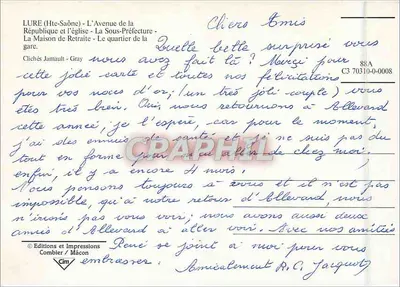 LURE (Hte-Saône) - L'Avenue de la
République et l'église - La Sous-Préfecture -
La Maison de Retraite - Le quartier de la
gare.
Clichés Jamault - Gray
88A
C3 70310-0-0008
Chers Amis
Quelle belle surprise vous
nous avez fait là ? Merçi pour
cette jolie carte et toutes nos félicitations
pour vos noces d'or, (un très joli couple) vous
êtes très bien. Oui, nous retournons à Allevard
cette année, je l'espère, car pour le moment,
j'ai des ennuis de santé et je ne suis pas du
tout en forme pour aller de chez moi.
enfin, il y a encore 4 mois.
Nous pensons toujours à vous et il n'est pas
impossible, qu'à notre retour d'Allevard, nous
n'irons pas vous voir, nous avons aussi deux
amies d'Allevard à aller voir. Avec nos amitiés
René se joint à moi pour vous
embrasser.
Amicalement R.C. Jacquot
CPAPHIL
© Editions et Impressions
Combier / Mâcon
Cim